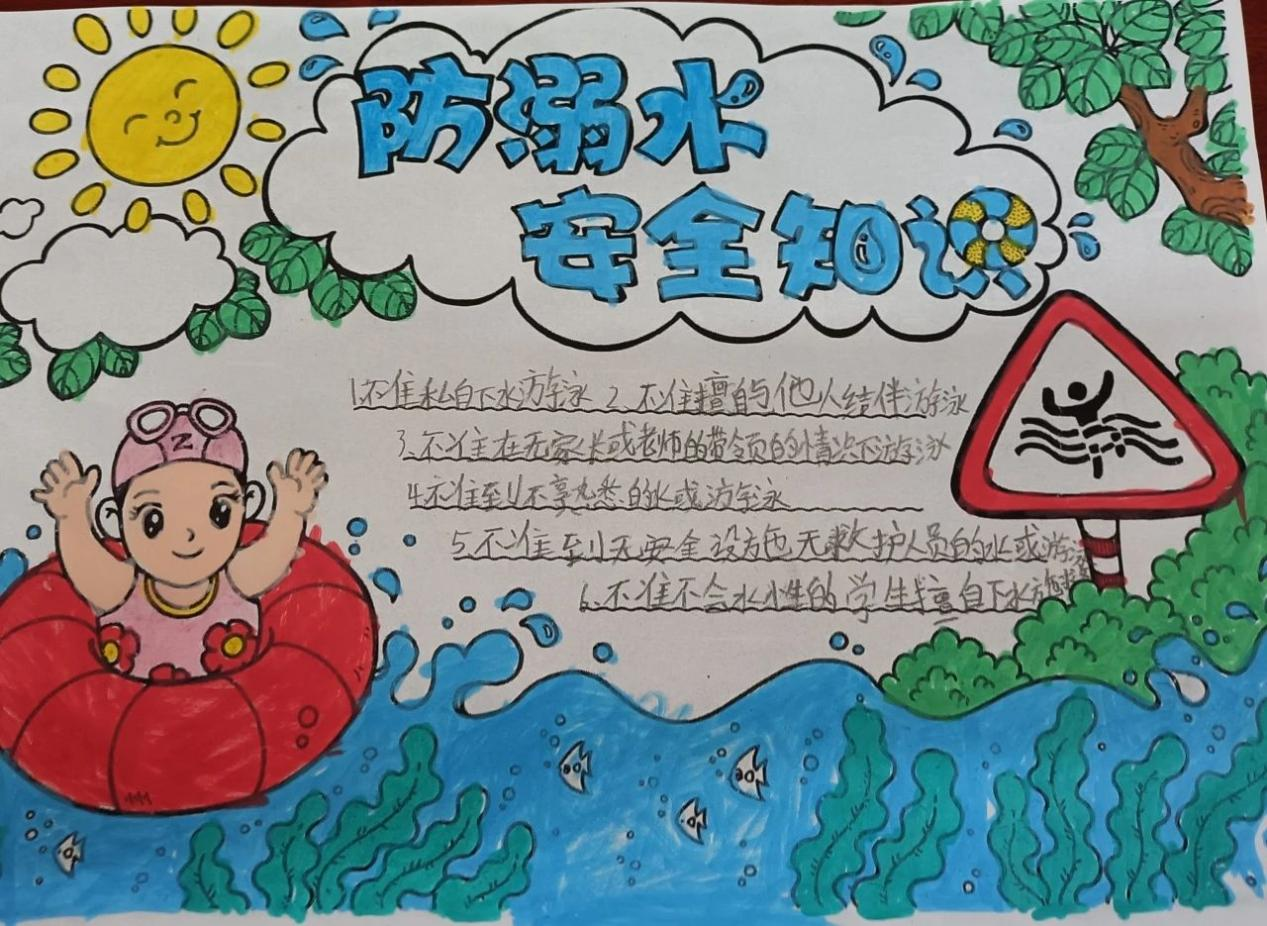 防溺水
安全知识
Z
1.不准私自下水游泳 2.不准擅自与他人结伴游泳
3.不准在无家长或老师的带领的情况下游泳
4.不准到不享丸悉的水或游泳
5.不准到无安全设施无救护人员的水或游泳
6.不准不会水性的学生擅自下水施救